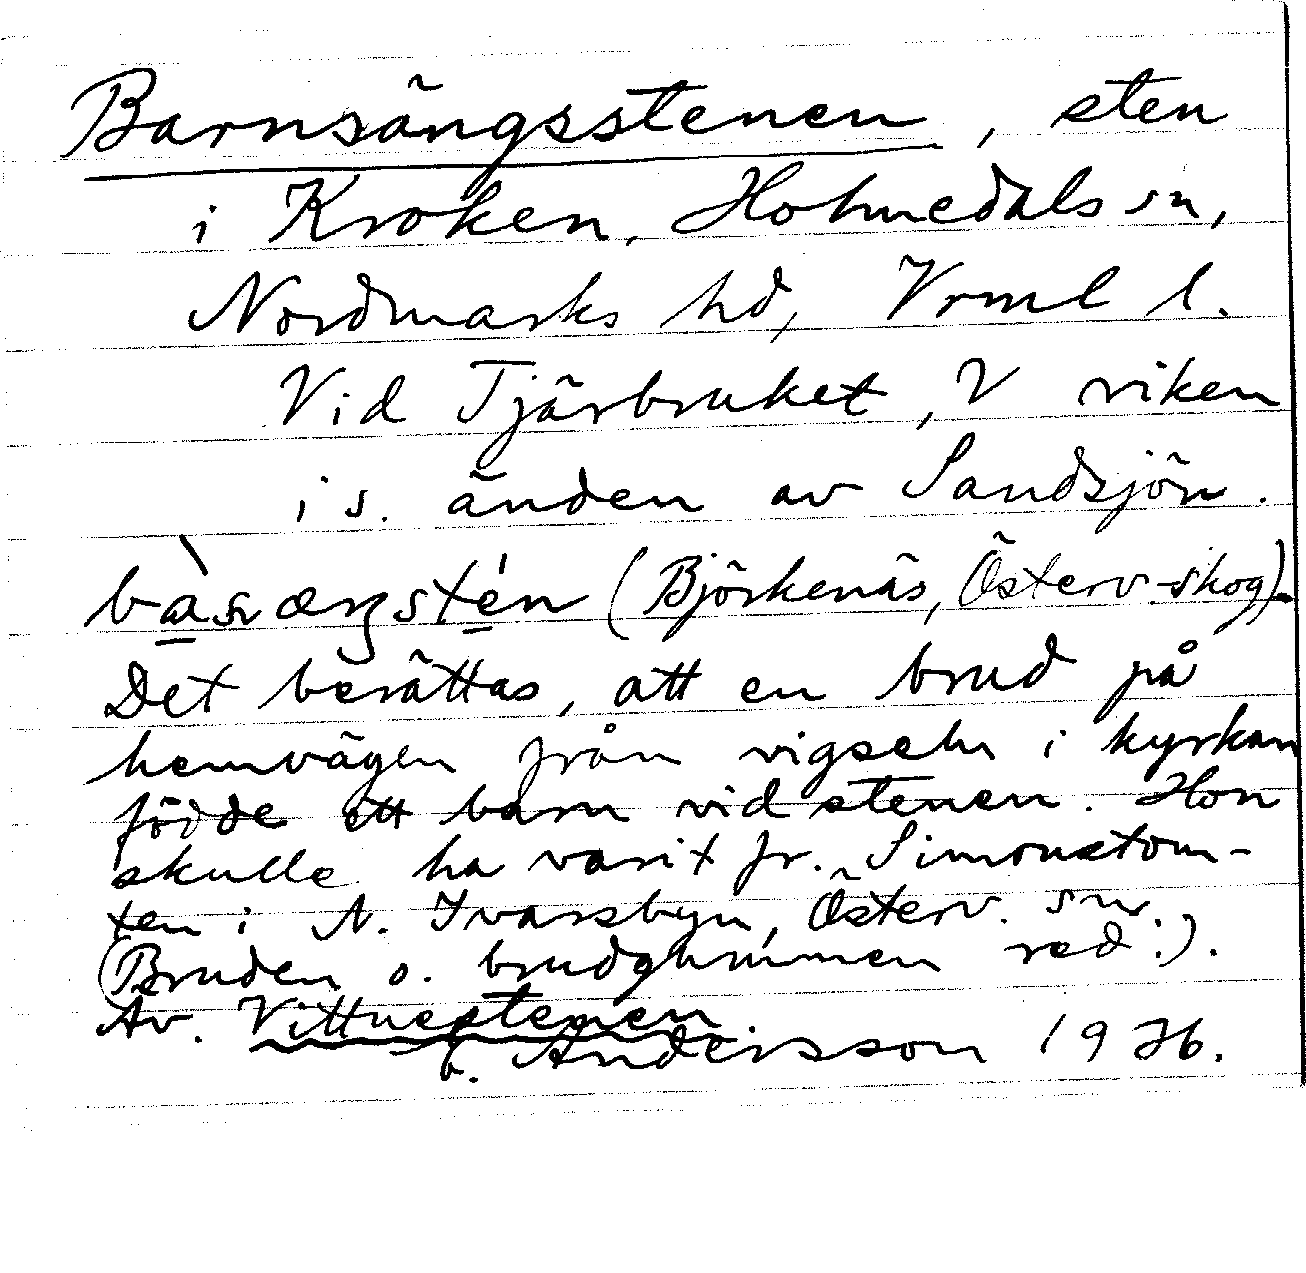 Barnsängsstenen, sten
i Kroken, Holmedals sn,
Nordmarks hd, Vrml l.
Vid Tjärbruket, V viken
i s. änden av Sandsjön.
(Björkenäs, Österv-skog).
Det berättas, att en brud på
hemvägen från vigseln i kyrkan
födde ett barn vid stenen. Hon
skulle ha varit fr. Simonstom-
ten i N. Ivarsbyn, Österv. sn.
(Bruden o. brudgummen red.).
Äv. Vittnestenen.
Andersson 1926.